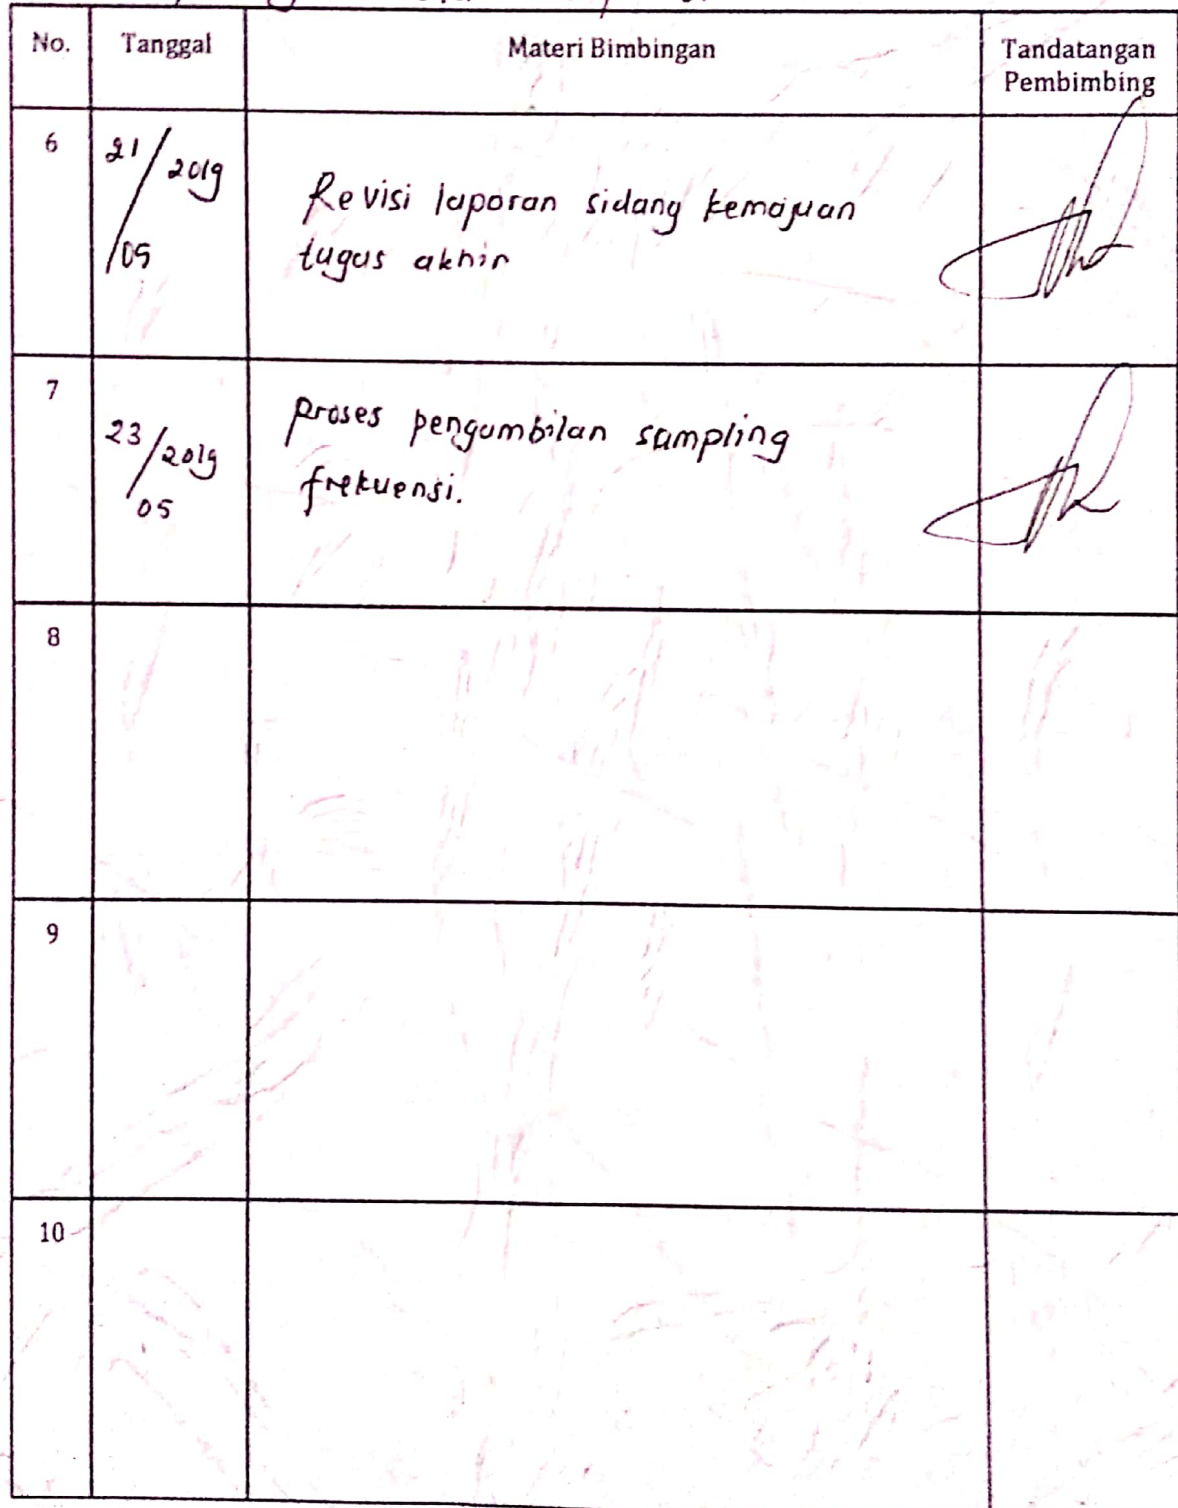 No. Tanggal Materi Bimbingan Tandatangan
Pembimbing
6 21/2019
/05
Revisi laporan sidang kemajuan
tugas akhir
7
23/2019
/05
proses pengambilan sampling
frekuensi.
8
9
10